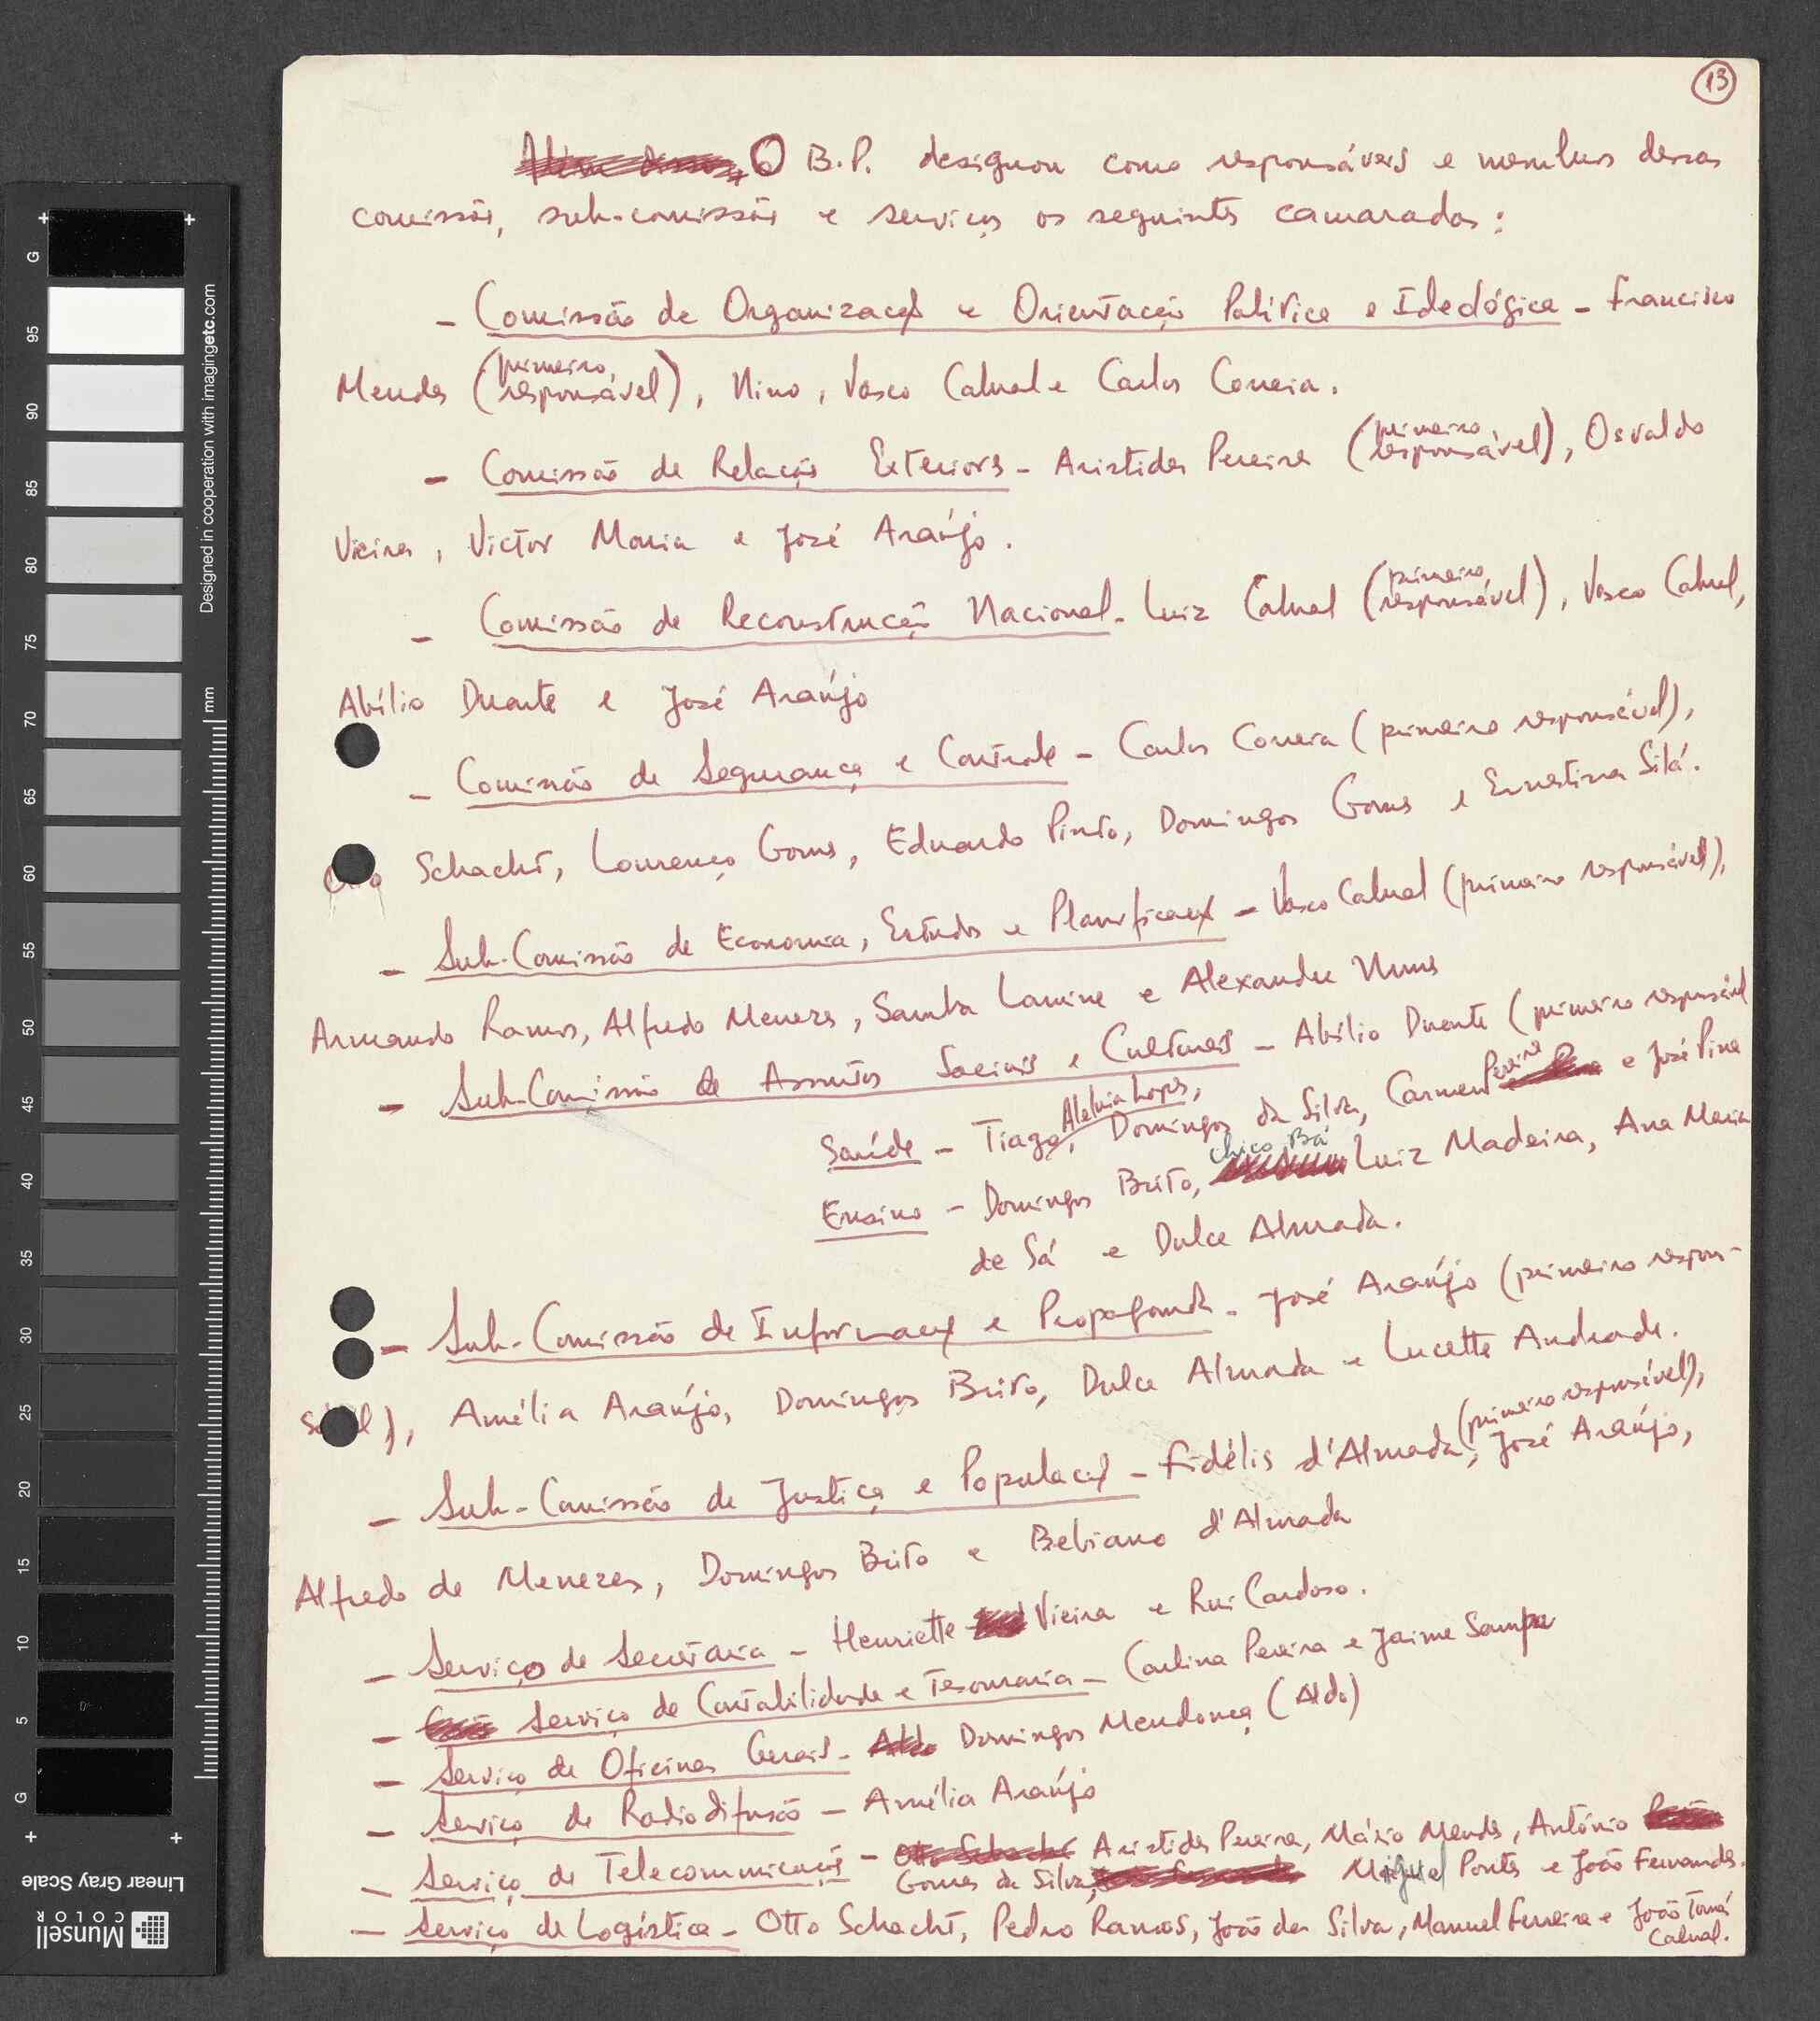 13
O B.P. designou como responsáveis e membros dessas
comissões, sub-comissões e serviços os seguintes camaradas:
- Comissão de Organização e Orientação Política e Ideológica - Francisco
Mendes (primeiro responsável), Nino, Vasco Cabral e Carlos Correia.
- Comissão de Relações Exteriores - Aristides Pereira (primeiro responsável), Osvaldo
Vieira, Victor Maria e José Araújo.
- Comissão de Reconstrução Nacional - Luiz Cabral (primeiro responsável), Vasco Cabral,
Abílio Duarte e José Araújo
- Comissão de Segurança e Controle - Carlos Correia (primeiro responsável),
Otto Schacht, Lourenço Gomes, Eduardo Pinto, Domingos Gomes e Ernestina Silá.
- Sub-Comissão de Economia, Estudos e Planificação - Vasco Cabral (primeiro responsável),
Armando Ramos, Alfredo Menezes, Samba Lamine e Alexandre Nunes
- Sub-Comissão de Assuntos Sociais e Culturais - Abílio Duarte (primeiro responsável
Saúde - Tiago Aleluia Lopes, Domingos da Silva, Carmen Pereira e José Pina
Ensino - Domingos Brito, Chico Bá Luiz Madeira, Ana Maria
de Sá e Dulce Almada.
- Sub-Comissão de Informação e Propaganda - José Araújo (primeiro respon-
sável), Amélia Araújo, Domingos Brito, Dulce Almada e Lucette Andrade.
- Sub-Comissão de Justiça e População - Fidélis d'Almada (primeiro responsável), José Araújo,
Alfredo de Menezes, Domingos Brito e Bebiano d'Almada
- Serviço de Secretaria - Henriette Vieira e Rui Cardoso.
- Serviço de Contabilidade e Tesouraria - Carlina Pereira e Jaime Sampa
- Serviço de Oficinas Gerais - Aldo Domingos Mendonça (Aldo)
- Serviço de Radiodifusão - Amélia Araújo
- Serviço de Telecomunicações - Otto Schacht Aristides Pereira, Mário Mendes, António
Gomes da Silva, Miguel Pontes e João Fernandes.
- Serviço de Logística - Otto Schacht, Pedro Ramos, João da Silva, Manuel Ferreira e João Tomás
Cabral.
Designed in cooperation with imagingetc.com
mm
G 95 90 85 80 75 70 65 60 55 50 45 40 35 30 25 20 15 10 5 G
Linear Gray Scale
Munsell
COLOR